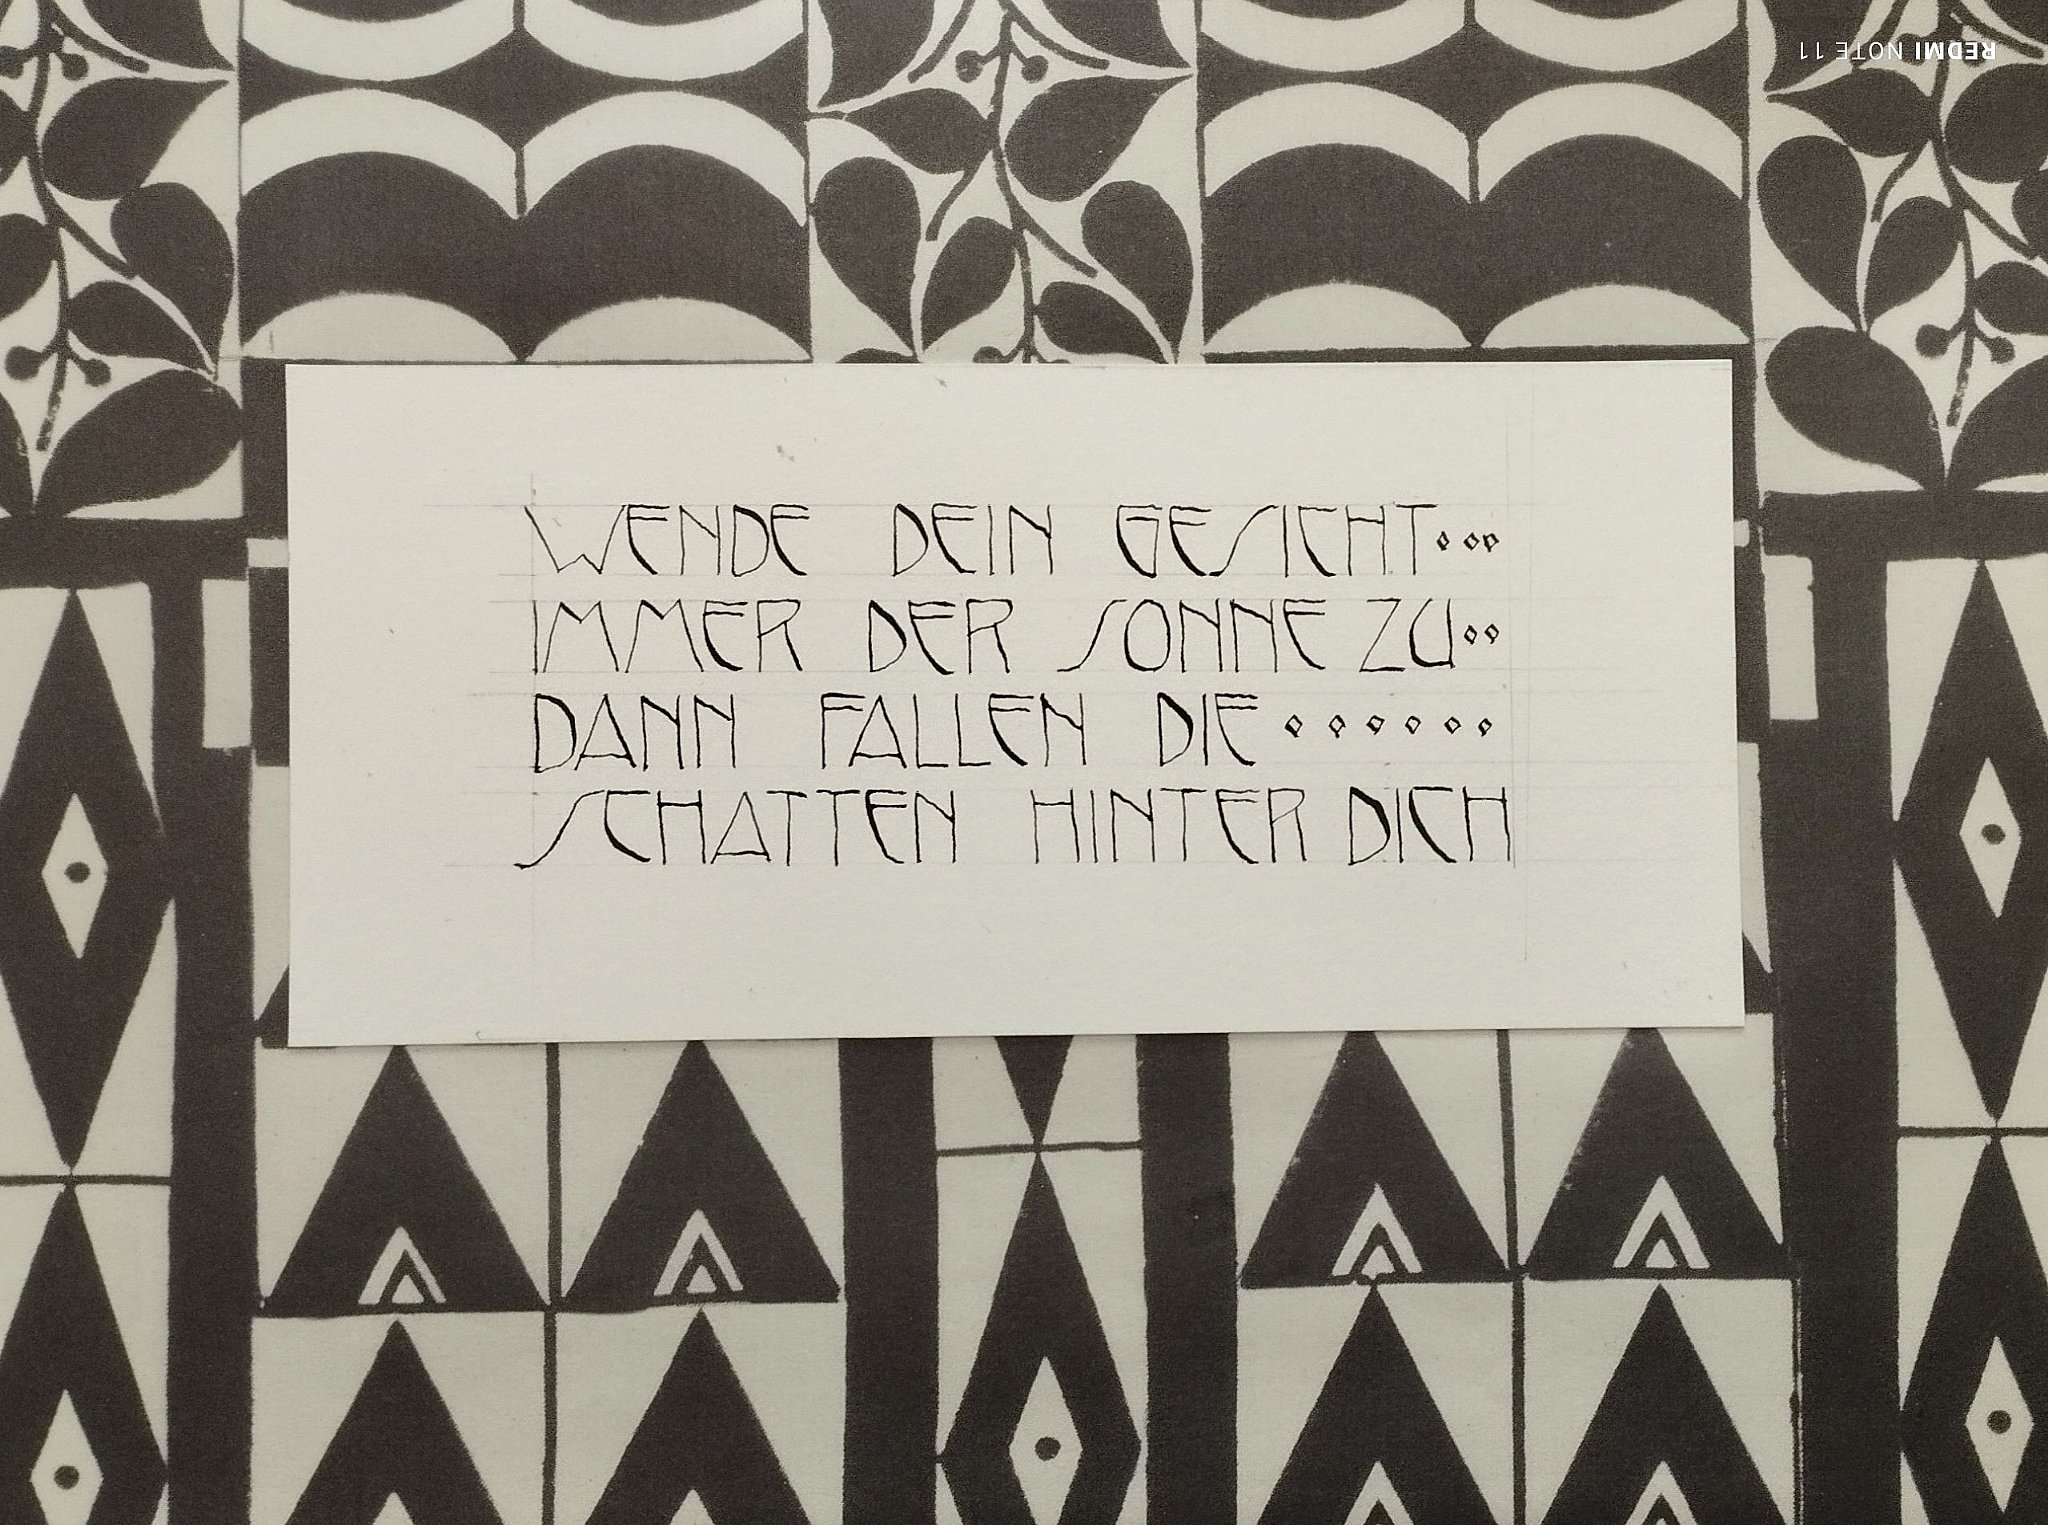 WENDE DEIN GESICHT...
IMMER DER SONNE ZU..
DANN FALLEN DIE ......
SCHATTEN HINTER DICH
REDMI NOTE 11